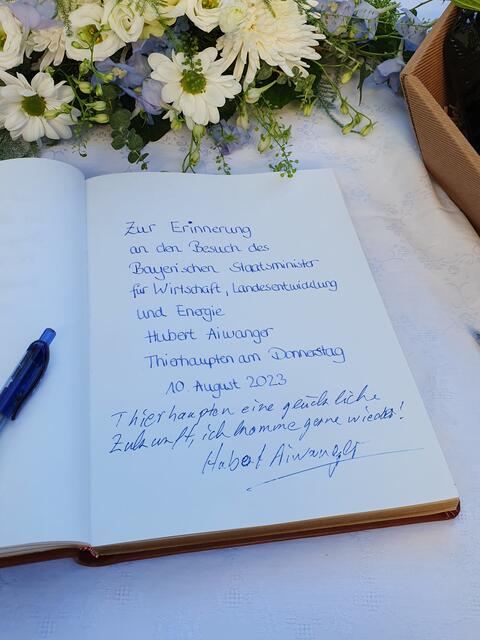 Zur Erinnerung
an den Besuch des
Bayerischen Staatsminister
für Wirtschaft, Landesentwicklung
und Energie
Hubert Aiwanger
Thierhaupten am Donnerstag
10. August 2023
Thierhaupten eine glückliche
Zukunft, ich komme gerne wieder!
Hubert Aiwanger